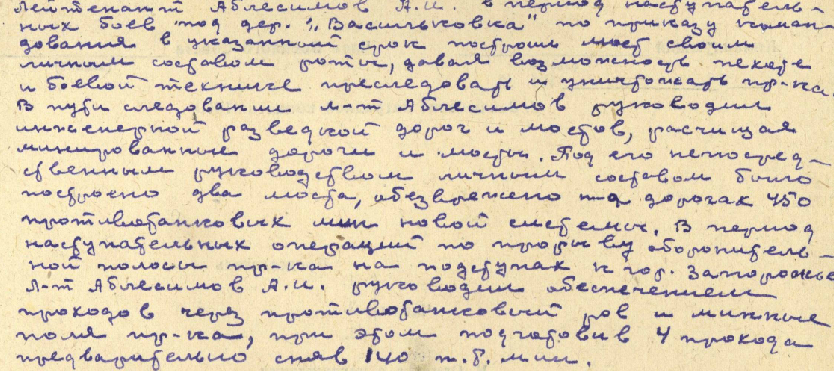 Лейтенант Аблесимов А.И. в период наступатель-
ных боев под дер. "Васильковка" по приказу коман-
дования в указанный срок построил мост своим
личным составом роты, давая возможность пехоте
и боевой технике преследовать и уничтожать пр-ка.
В пути следования л-т Аблесимов руководил
инженерной разведкой дорог и мостов, расчищая
минированные дороги и мосты. Под его непосред-
ственным руководством личным составом было
построено два моста, обезврежено на дорогах 450
противотанковых мин новой системы. В период
наступательных операций по прорыву оборонитель-
ной полосы пр-ка на подступах к гор. Запорожье
л-т Аблесимов А.И. руководил обеспечением
проходов через противотанковый ров и минные
поля пр-ка, при этом подготовив 4 прохода
предварительно сняв 140 т.б. мин.